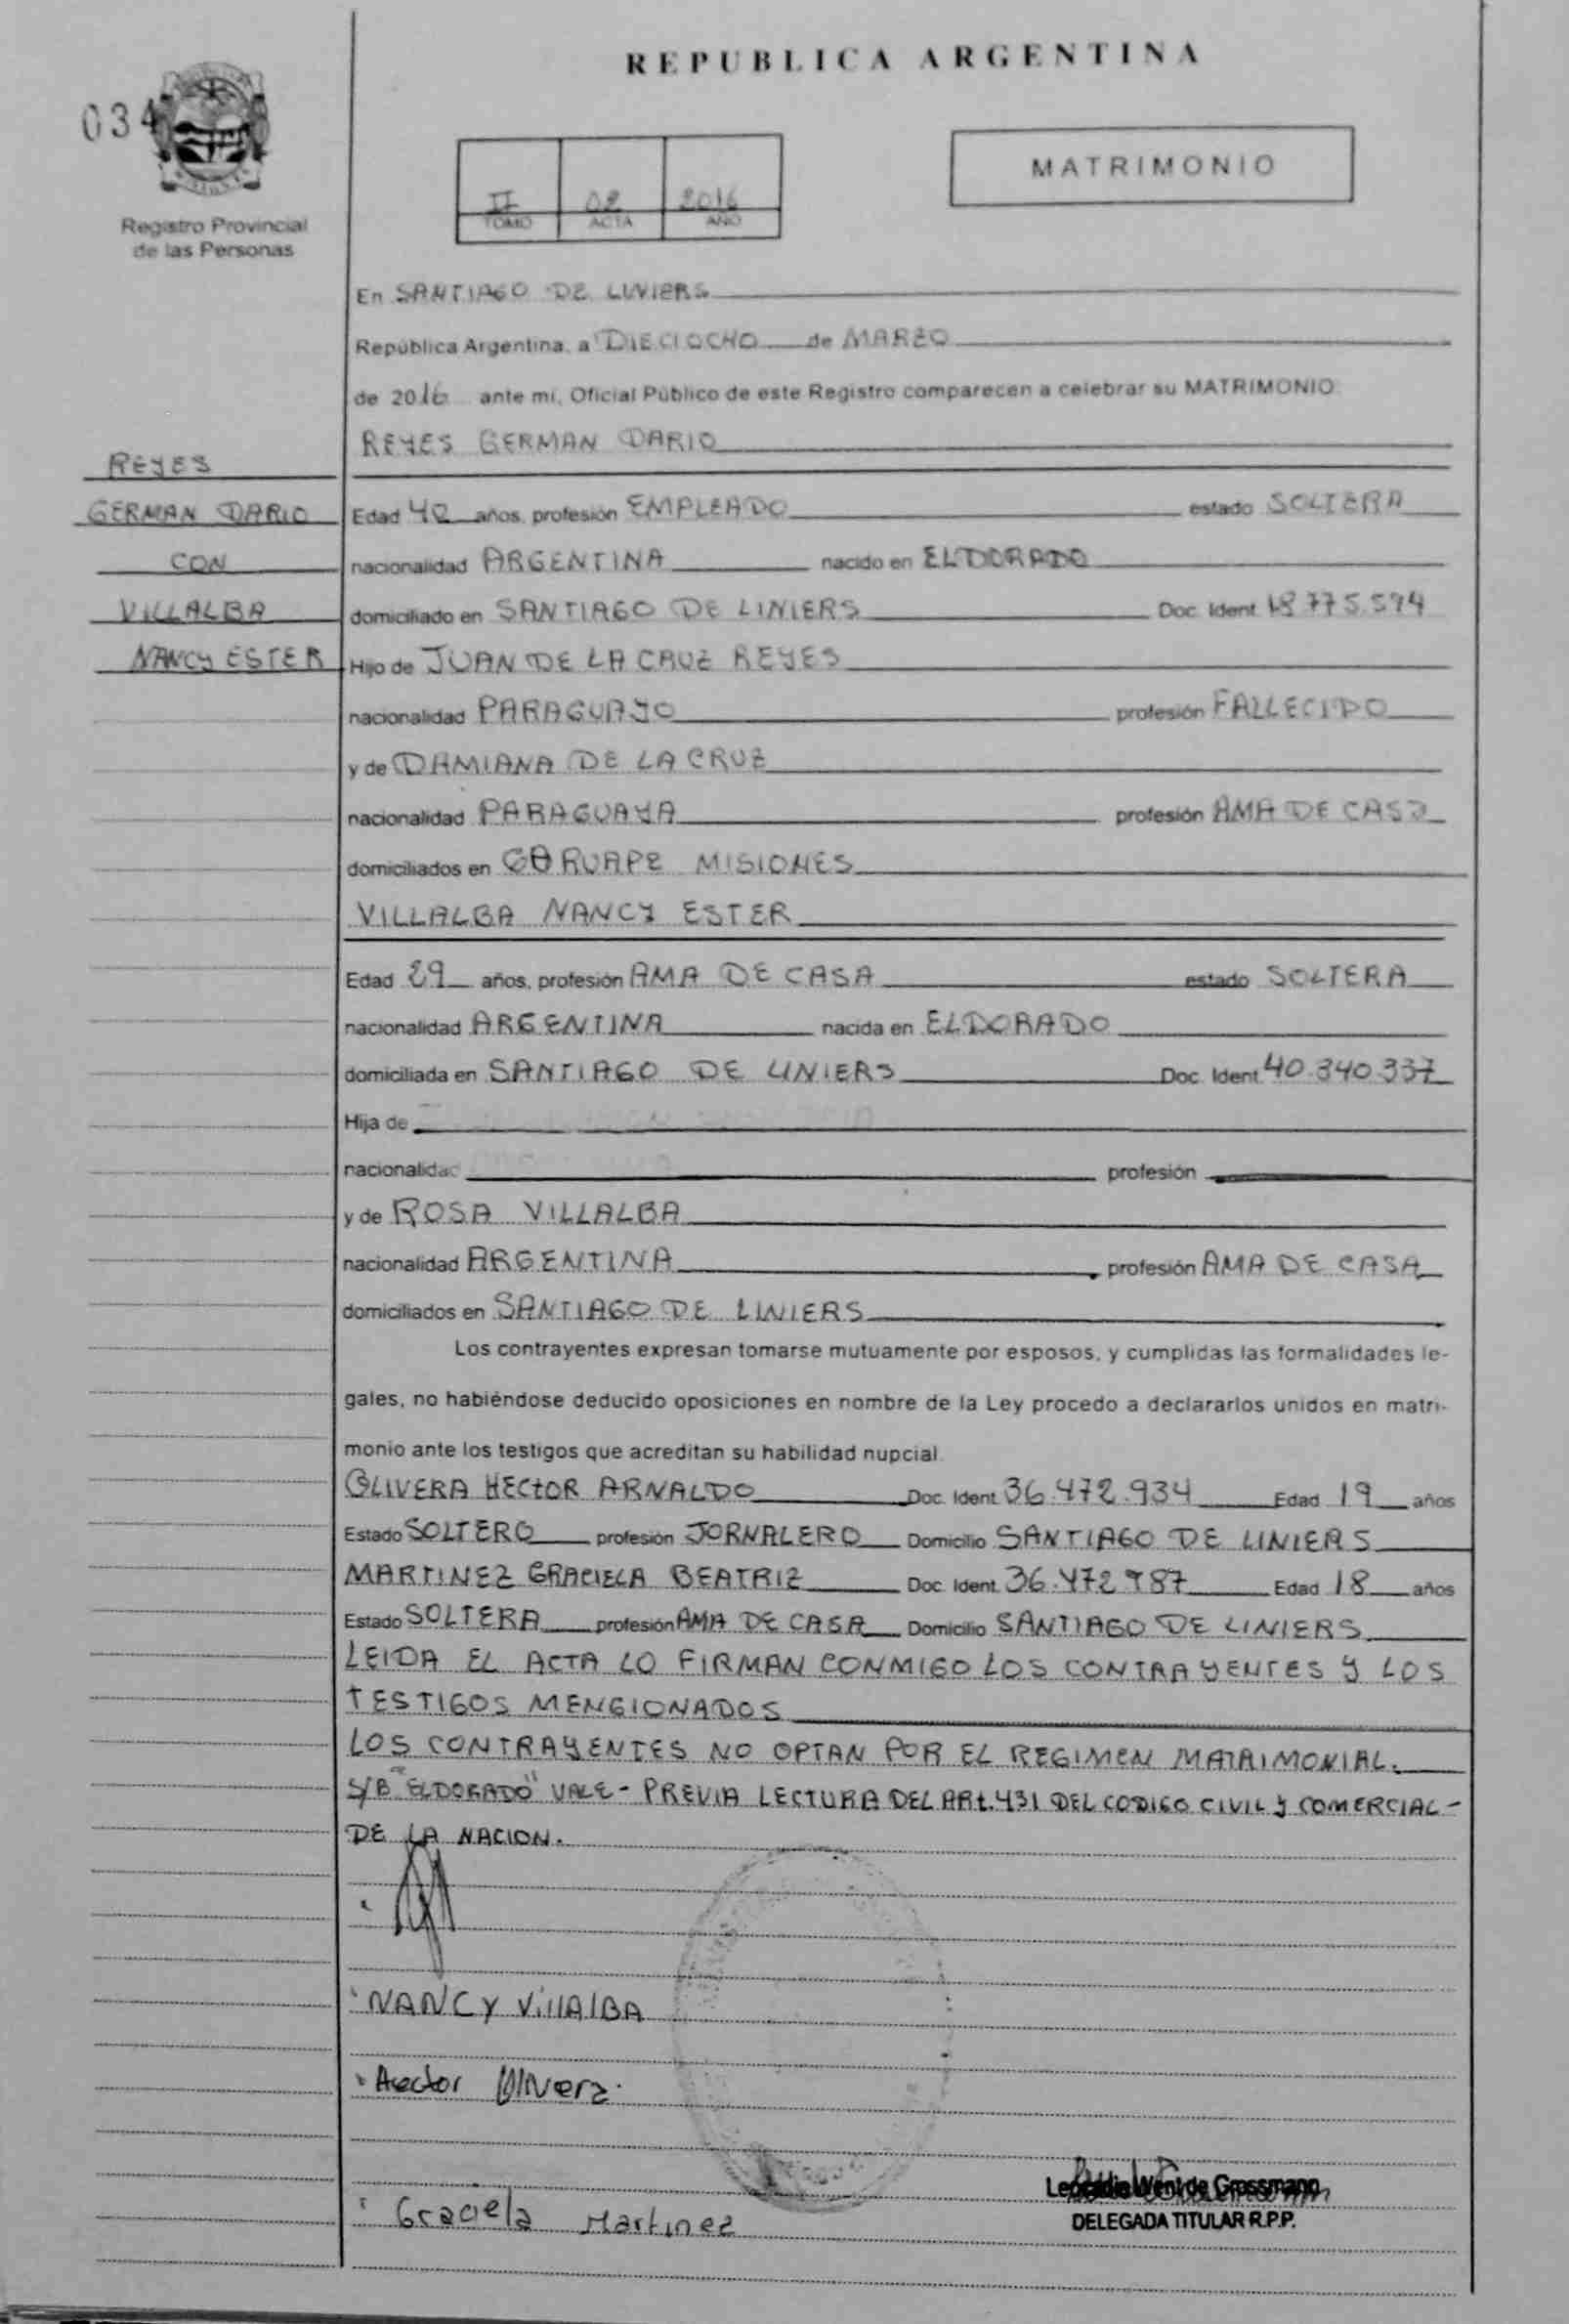 REPUBLICA ARGENTINA
034
Registro Provincial
de las Personas
II 02 2016
TOMO ACTA AÑO
MATRIMONIO
En SANTIAGO DE LINIERS
República Argentina, a DIECIOCHO de MARZO
de 2016 ante mi, Oficial Público de este Registro comparecen a celebrar su MATRIMONIO:
REYES GERMAN DARIO
REYES
GERMAN DARIO
CON
VILLALBA
NANCY ESTER
Edad 40 años, profesión EMPLEADO estado SOLTERA
nacionalidad ARGENTINA nacido en ELDORADO
domiciliado en SANTIAGO DE LINIERS Doc. Ident. 18.775.594
Hijo de JUAN DE LA CRUZ REYES
nacionalidad PARAGUAYO profesión FALLECIDO
y de DAMIANA DE LA CRUZ
nacionalidad PARAGUAYA profesión AMA DE CASA
domiciliados en GARUAPE MISIONES
VILLALBA NANCY ESTER
Edad 29 años, profesión AMA DE CASA estado SOLTERA
nacionalidad ARGENTINA nacida en ELDORADO
domiciliada en SANTIAGO DE LINIERS Doc. Ident. 40.340.337
Hija de
nacionalidad profesión
y de ROSA VILLALBA
nacionalidad ARGENTINA profesión AMA DE CASA
domiciliados en SANTIAGO DE LINIERS
Los contrayentes expresan tomarse mutuamente por esposos, y cumplidas las formalidades le-
gales, no habiéndose deducido oposiciones en nombre de la Ley procedo a declararlos unidos en matri-
monio ante los testigos que acreditan su habilidad nupcial.
OLIVERA HECTOR ARNALDO Doc. Ident. 36.472.934 Edad 19 años
Estado SOLTERO profesión JORNALERO Domicilio SANTIAGO DE LINIERS
MARTINEZ GRACIELA BEATRIZ Doc. Ident. 36.472.987 Edad 18 años
Estado SOLTERA profesión AMA DE CASA Domicilio SANTIAGO DE LINIERS
LEIDA EL ACTA LO FIRMAN CONMIGO LOS CONTRAYENTES Y LOS
TESTIGOS MENCIONADOS
LOS CONTRAYENTES NO OPTAN POR EL REGIMEN MATRIMONIAL.
S/B "ELDORADO" VALE - PREVIA LECTURA DEL ARt. 431 DEL CODIGO CIVIL Y COMERCIAL -
DE LA NACION.
NANCY VillAlBA
Hector Olivera
Graciela Martinez
Leocadia Went de Grossmann
DELEGADA TITULAR R.P.P.